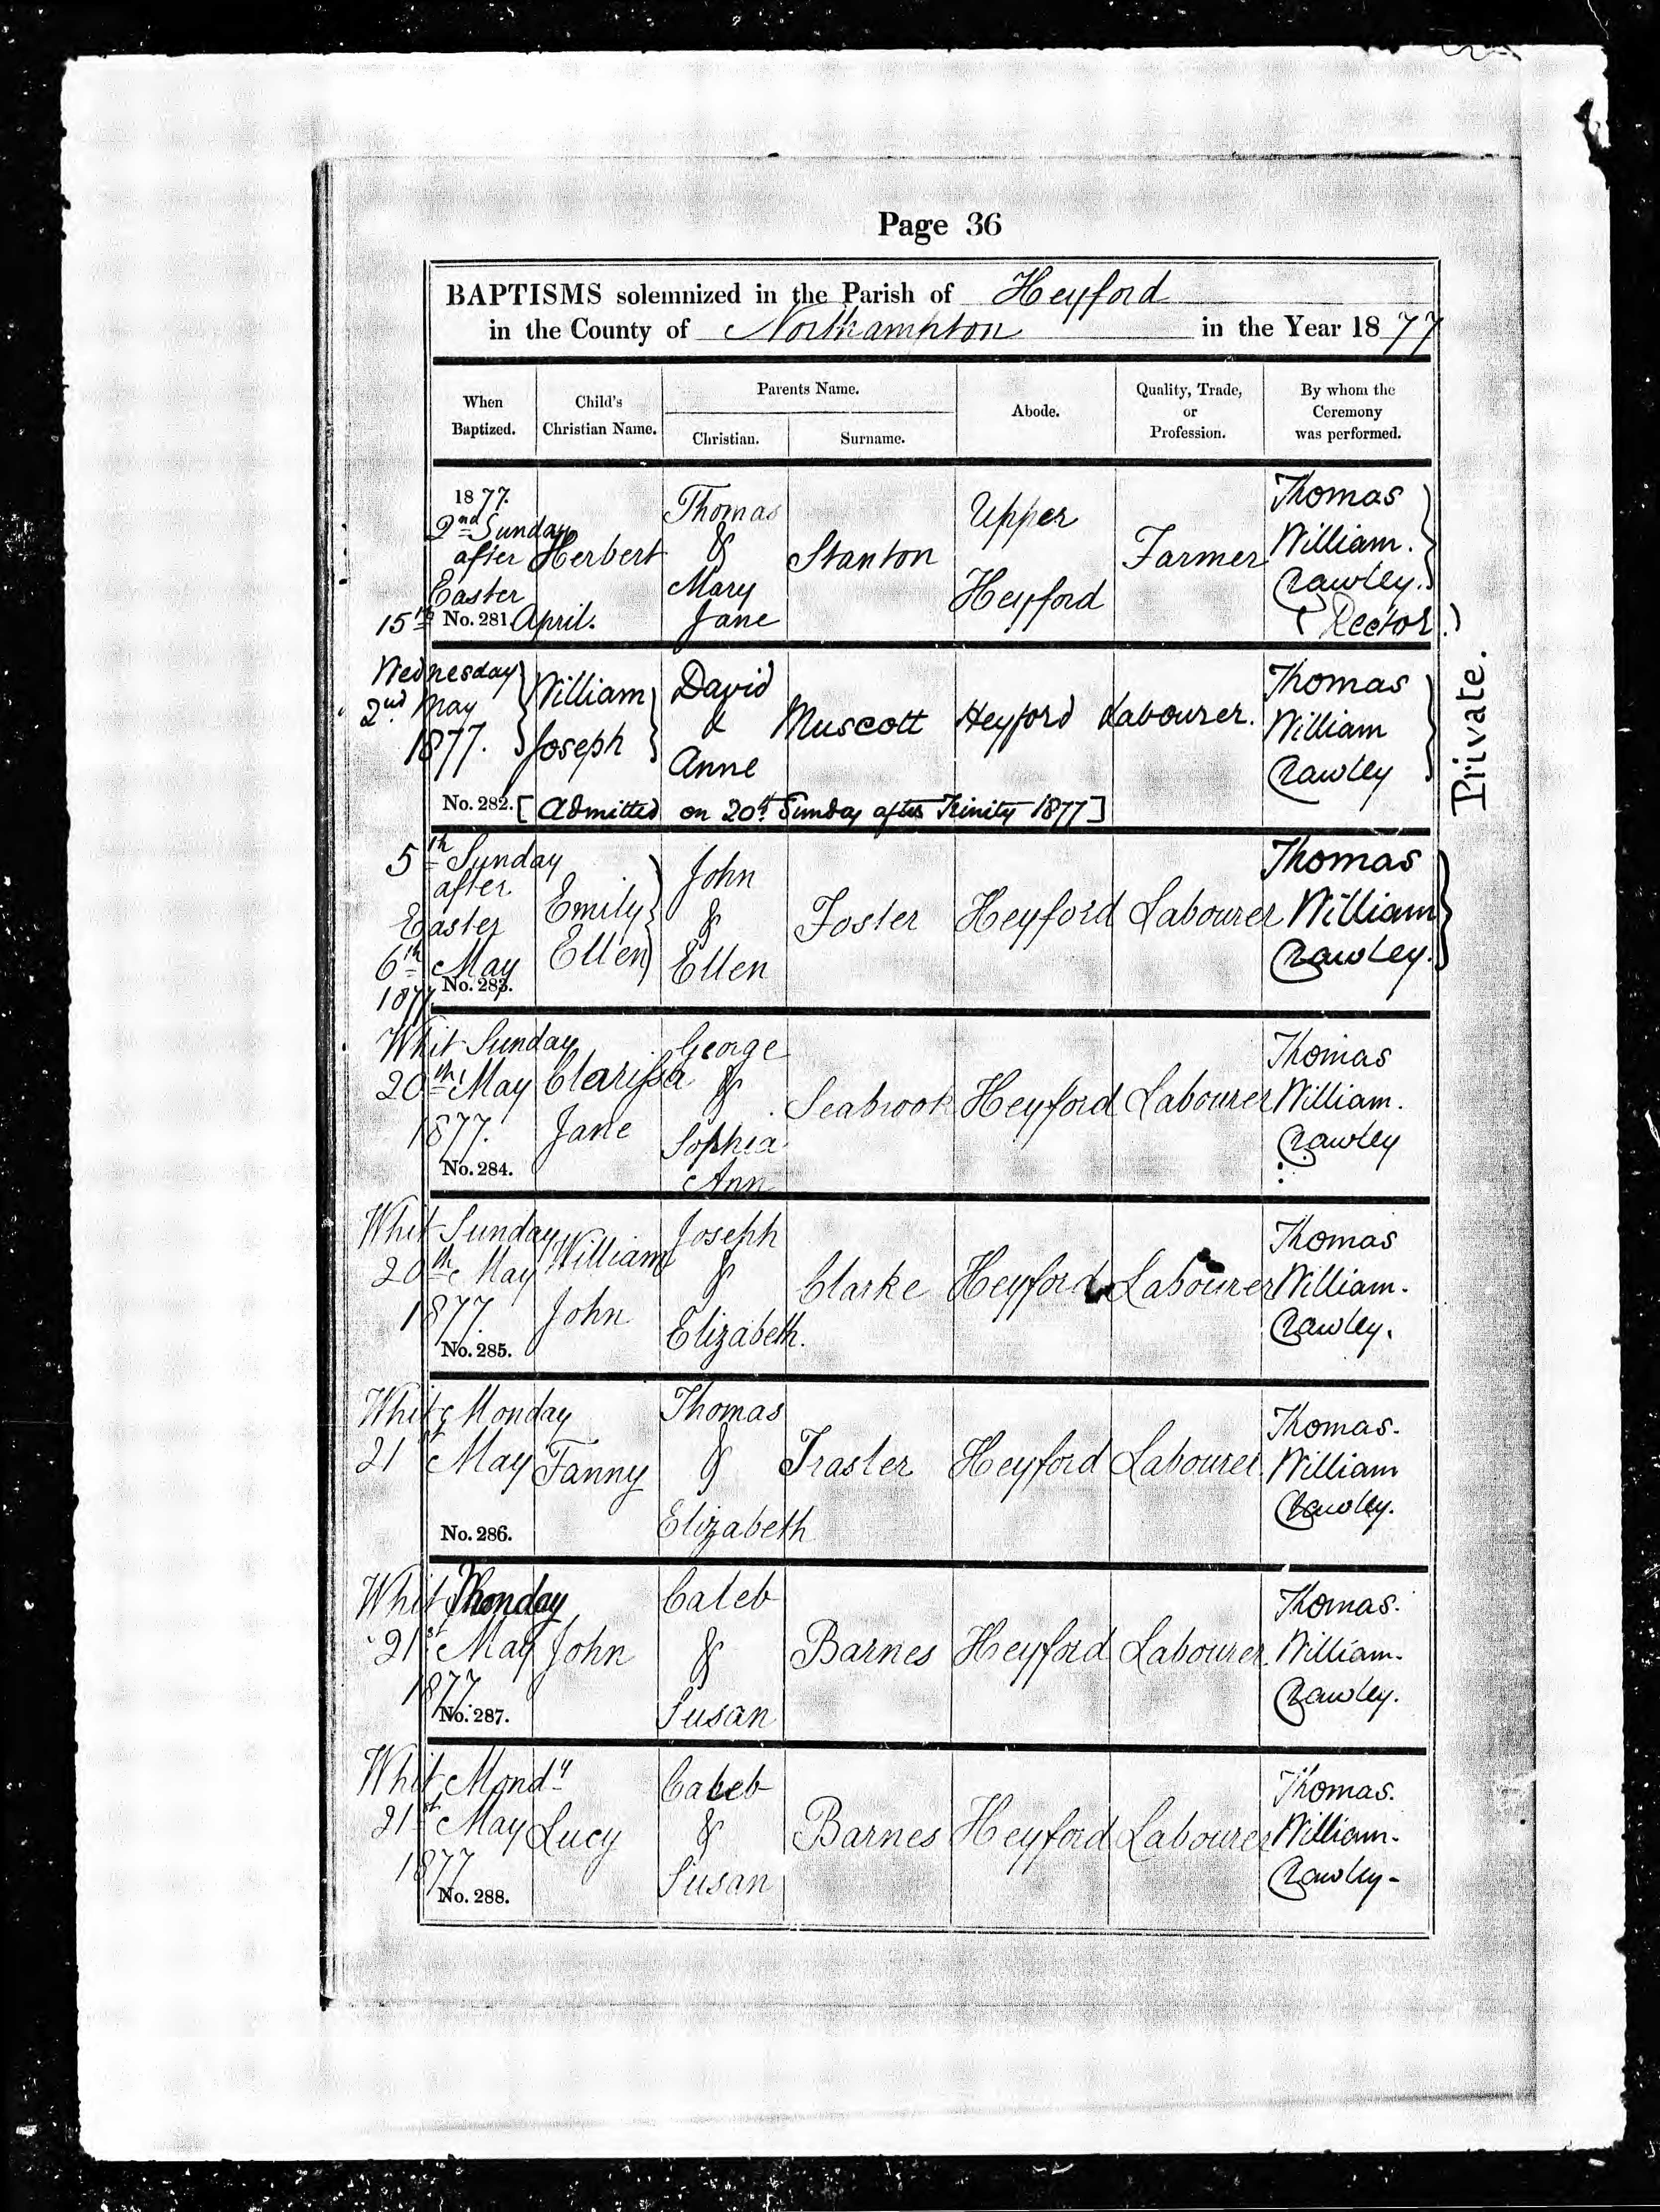 Page 36
BAPTISMS solemnized in the Parish of Heyford
in the County of Northampton in the Year 1877
When Baptized.
Child's Christian Name.
Parents Name.
Christian.
Surname.
Abode.
Quality, Trade, or Profession.
By whom the Ceremony was performed.
1877.
2nd Sunday
after
Easter
15th No. 281. April.
Herbert
Thomas
&
Mary
Jane
Stanton
Upper
Heyford
Farmer
Thomas
William.
Crawley.
(Rector.)
Wednesday
2nd May
1877.
William
Joseph
David
&
Anne
Muscott
Heyford
Labourer.
Thomas
William
Crawley
Private.
No. 282. [Admitted on 20th Sunday after Trinity 1877]
5th Sunday
after
Easter
6th May
1877
No. 283.
Emily
Ellen
John
&
Ellen
Foster
Heyford
Labourer
Thomas
William
Crawley.
Whit Sunday
20th May
1877.
No. 284.
Clarissa
Jane
George
&
Sophia
Ann
Seabrook
Heyford
Labourer
Thomas
William.
Crawley
Whit Sunday
20th May
1877.
No. 285.
William
John
Joseph
&
Elizabeth.
Clarke
Heyford
Labourer
Thomas
William.
Crawley.
Whit Monday
21st May
No. 286.
Fanny
Thomas
&
Elizabeth
Traster
Heyford
Labourer
Thomas.
William
Crawley.
Whit Monday
21st May
1877.
No. 287.
John
Caleb
&
Susan
Barnes
Heyford
Labourer.
Thomas.
William.
Crawley.
Whit Mondy
21st May
1877
No. 288.
Lucy
Caleb
&
Susan
Barnes
Heyford
Labourer
Thomas.
William.
Crawley-